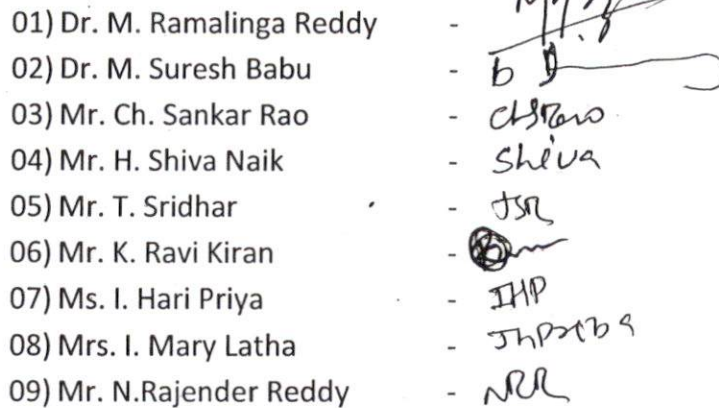 01) Dr. M. Ramalinga Reddy -
02) Dr. M. Suresh Babu -
03) Mr. Ch. Sankar Rao - ChSRao
04) Mr. H. Shiva Naik - Shiva
05) Mr. T. Sridhar - TSR
06) Mr. K. Ravi Kiran -
07) Ms. I. Hari Priya - IHP
08) Mrs. I. Mary Latha -
09) Mr. N.Rajender Reddy - NRR